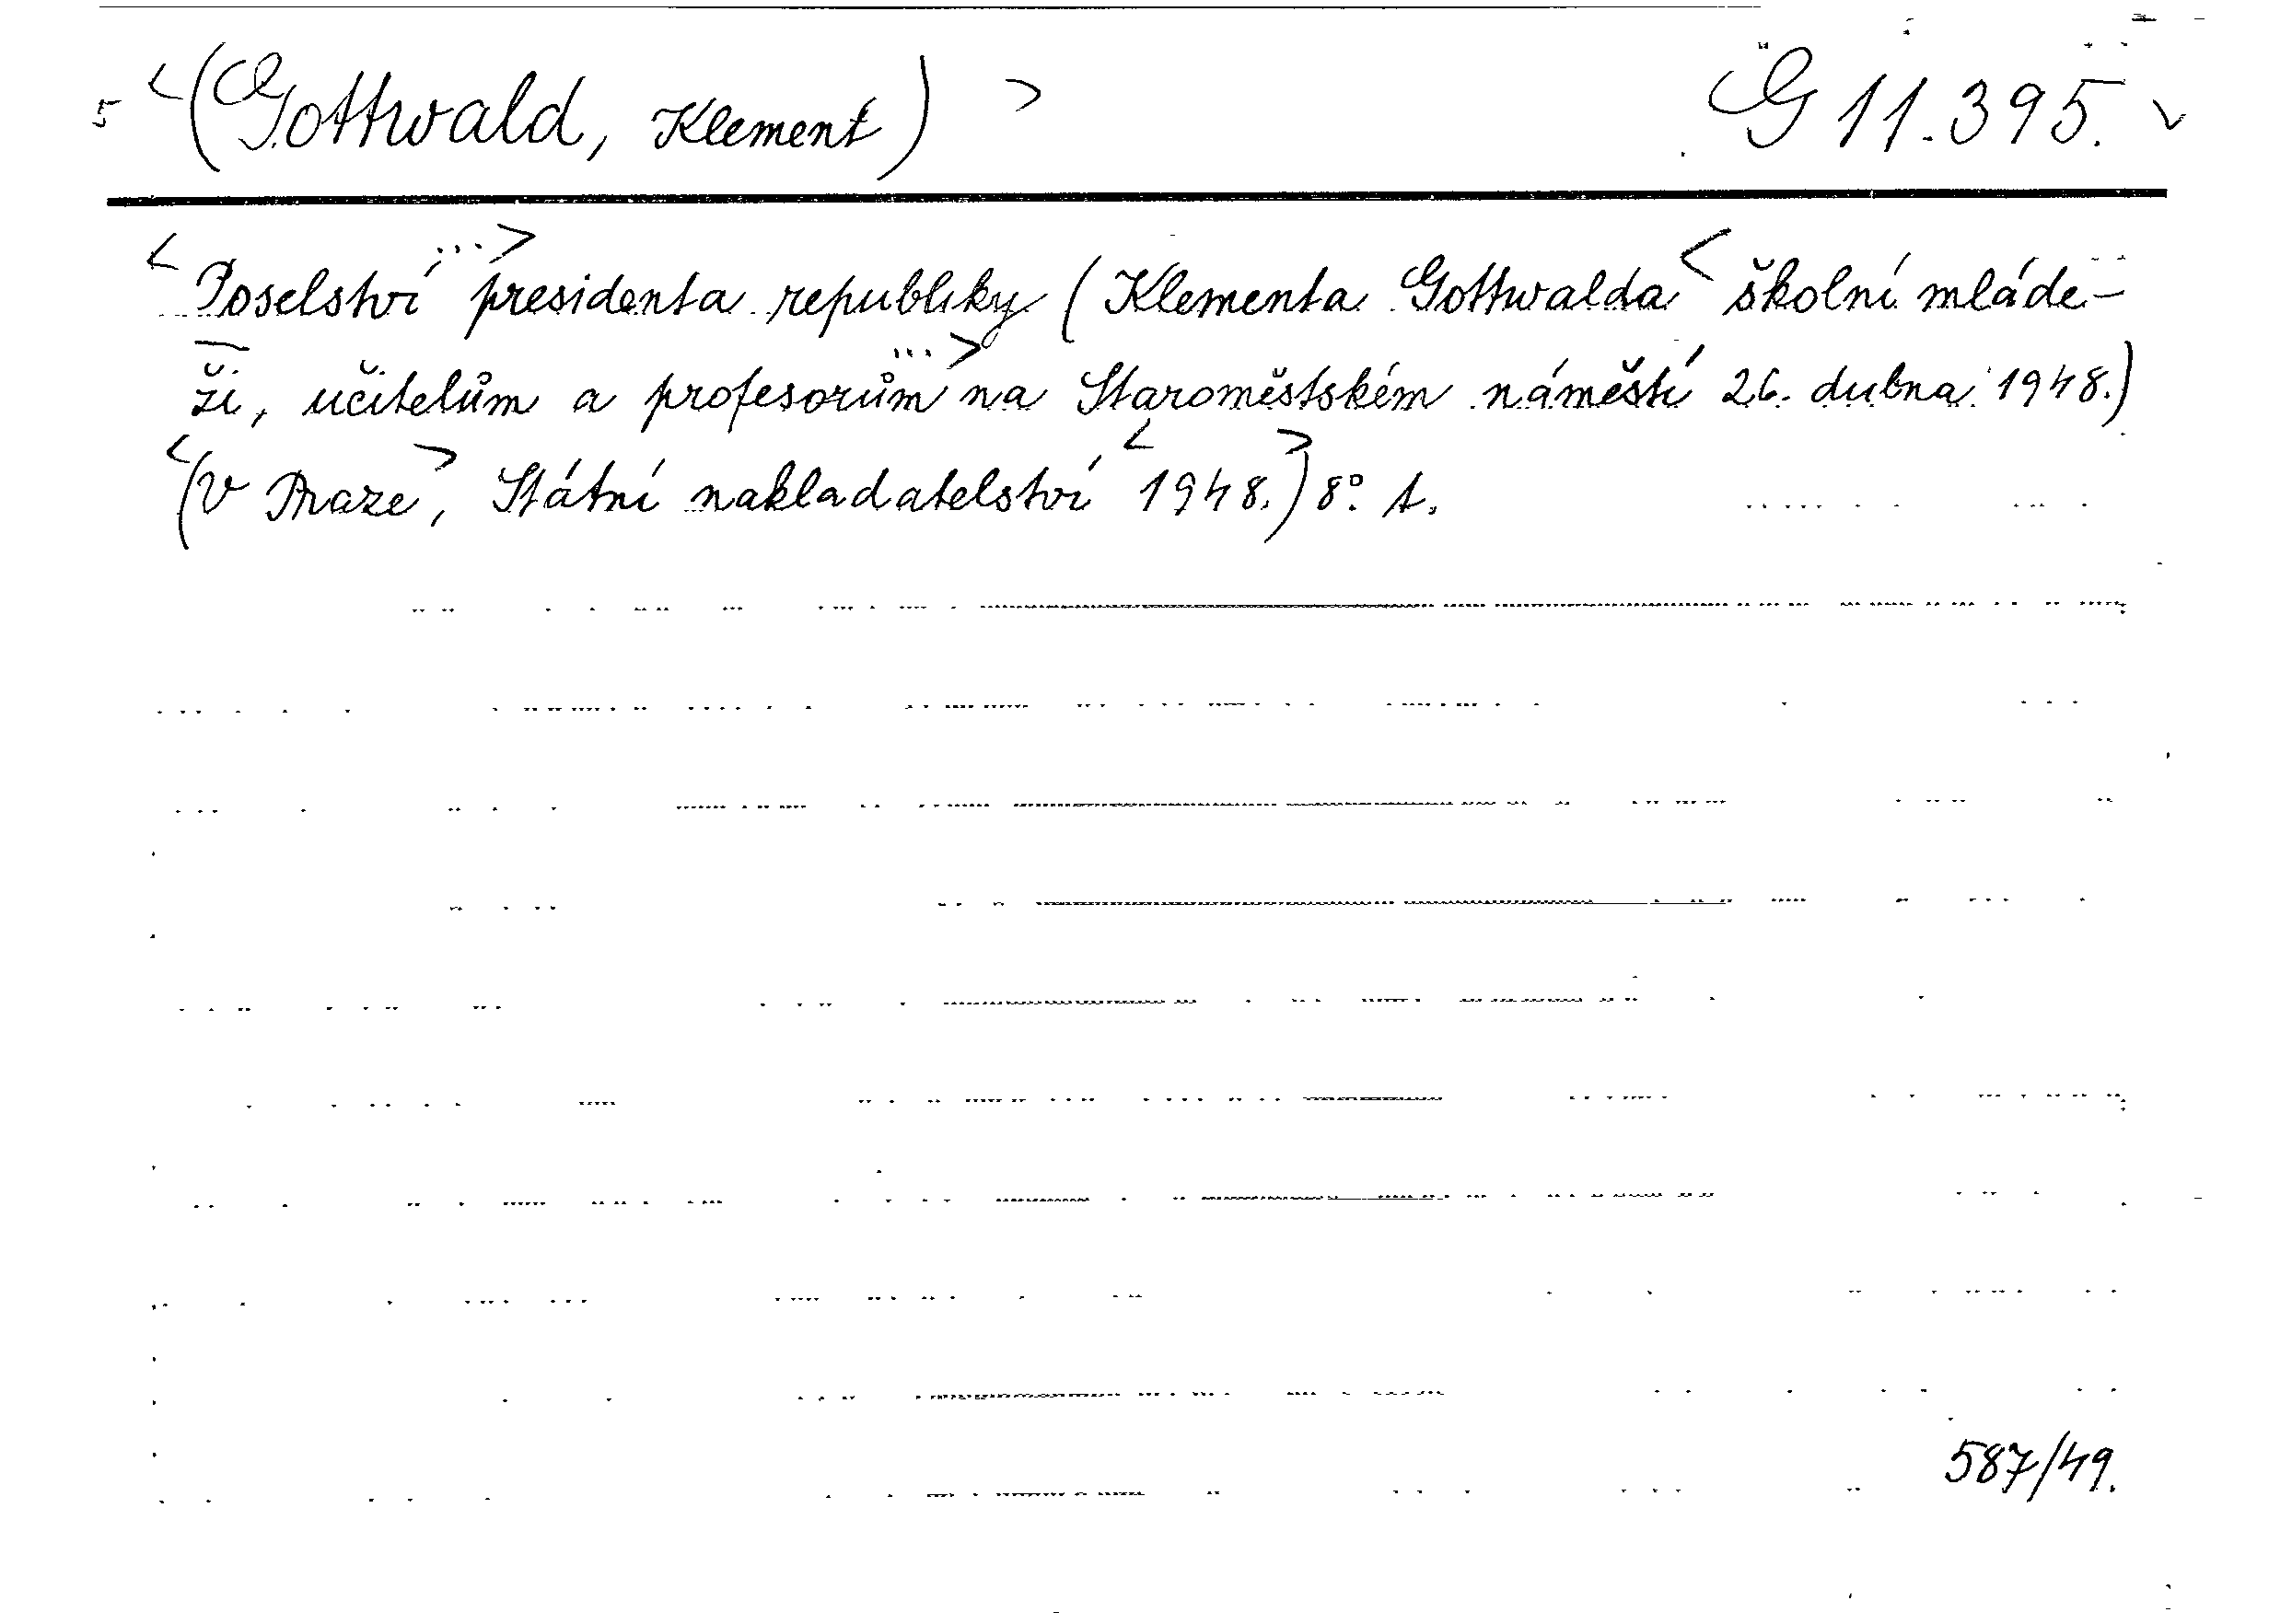 5 <(Gottwald, Klement) > G 11.395. v
<Poselství ...> presidenta republiky (Klementa Gottwalda < školní mláde-
ži, učitelům a profesorům ...> na Staroměstském náměstí 26. dubna 1948.)
<(V Praze>, Státní nakladatelství <1948.>) 8°. A.
587/49.